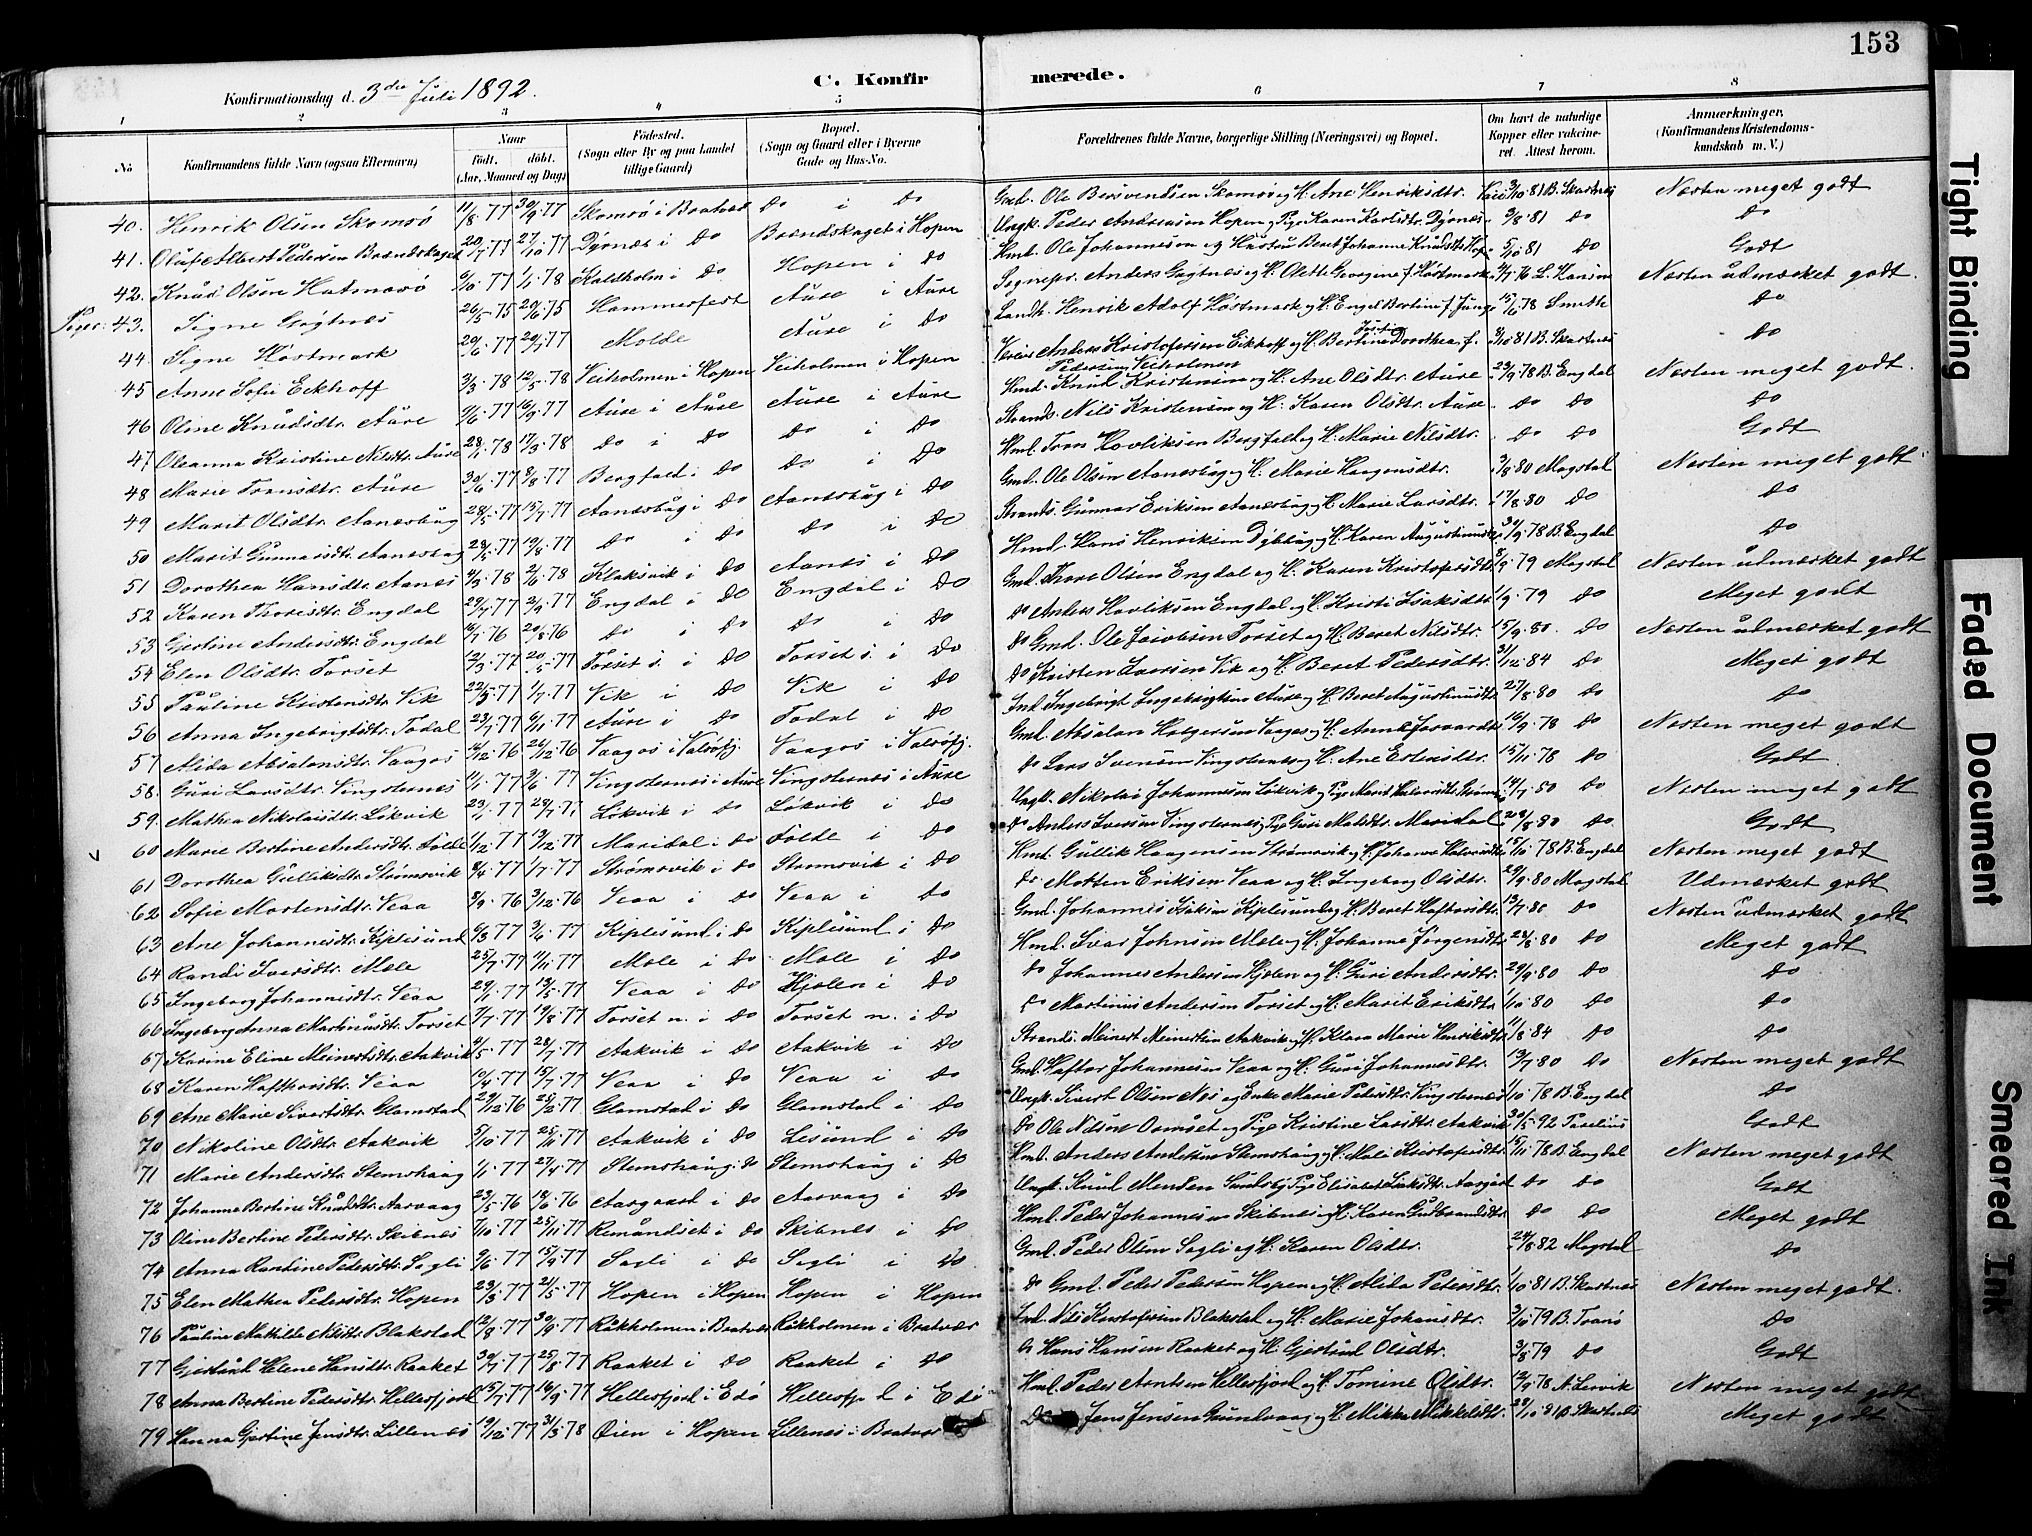 153
Konfirmationsdag d. 3die Juli 1892.
C. Konfirmerede.
1 2 3 4 5 6 7 8
No
Konfirmandens fulde Navn (ogsaa Efternavn)
Naar
født. døbt.
(Aar, Maaned og Dag)
Fødested.
(Sogn eller By og paa Landet
tillige Gaard)
Bopæl.
(Sogn og Gaard eller i Byerne
Gade og Hus-No.
Forældrenes fulde Navne, borgerlige Stilling (Næringsvei) og Bopæl.
Om havt de naturlige
Kopper eller vaccine-
ret. Attest herom.
Anmærkninger,
(Konfirmandens Kristendoms-
kundskab m. V.)
40. Henrik Olsen Skomsø 11/8 77 30/9 77 Skomsø i Bratvær Do i Do Gmd. Ole Bersvendsen Skomsø og H. Ane Henriksdtr. 81 B. Skartnes Næsten meget godt
41. Oluf Albert Pedersen Brændskaget 77 27/10 77 Dyrnæs i Do Brændskaget i Hopen Ungk. Peder Andreasen Hopen og Pige Karen Karlsdtr. Dyrnæs 3/8 81 Do Do
42. Knud Olsen Hatmorø 77 1/1 78 Kaldholm i Do Hopen i Do Hmd. Ole Johannesen og Hustru Beret Johanne Knudsdtr. 5/10 81 Do Godt
Piger: 43. Signe Gogtnes 26/5 75 75 Hammerfest Aure i Aure Sognepr. Anders Gogtnes og H. Olette Georgine f. Høstmark 76 L. Næsten udmærket godt.
44 Signe Høstmark 29/6 77 29/7 77 Molde Aure i Do Landh. Henrik Adolf Høstmark og H. Engel Bertine f. Jünge 15/6 78 Smith Do
45 Anne Sofie Eckhoff 3/3 78 12/5 78 Veiholmen i Hopen Veiholmen i Hopen Anders Kristofersen Eckhoff og H. Bertine Dorothea f. Pedersen Veiholmen 3/10 81 B. Skartnes Do
46 Oline Knudsdtr. Aure 77 16/9 77 Aure i Aure Aure i Aure Hmd. Knud Kristensen og H. Ane Olsdtr. Aure 23/9 78 B. Engdal Næsten meget godt.
47 Oleanna Kristine Nilsdtr. Aure 28/1 78 17/3 78 Do i Do Do i Do Strands. Nils Kristensen og H. Karen Olsdtr. Aure Do Do Do
48 Marie Tronsdtr. Aure 30/6 77 77 Bergfald i Do Do i Do Hmd. Tron Havliksen Bergfald og H. Marie Nilsdtr. Do Do Godt
49 Marit Olsdtr. Aanesbug 28/5 77 15/7 77 Aanesbug i Do Aanesbug i Do Gmd. Ole Olsen Aanesbug og H. Marie Haagensdtr. 3/8 80 Magstal Næsten meget godt.
50 Marit Gunnarsdtr. Aanesbug 28/5 77 19/8 77 Do i Do Do i Do Strands. Gunnar Eriksen Aanesbug og H. Marie Larsdtr. 17/8 80 Do Do
51 Dorothea Hansdtr. Aanes 4/3 78 2/6 78 Klaksvik i Do Aanes i Do Hmd. Hans Henriksen Dybbug og H. Karen Augustinusdtr. 78 B. Engdal Do
52 Karen Thoresdtr. Engdal 29/7 77 2/9 77 Engdal i Do Engdal i Do Gmd. Thore Olsen Engdal og H. Karen Kristofersdtr. 79 Magstal Næsten udmærket godt
53 Gjertine Andersdtr. Engdal 16/7 76 20/8 76 Do i Do Do i Do Do Anders Havliksen Engdal og H. Kristi Isaksdtr. 1/9 79 Do Meget godt
54 Elen Olsdtr. Torset 12/3 77 20/5 77 Torset s. i Do Torset s. i Do Do Gmd. Ole Jacobsen Torset og H. Beret Nilsdtr. 15/9 80. Do Næsten udmærket godt
55 Pauline Kristensdtr. Vik 22/5 77 1/7 77 Vik i Do Vik i Do Do Kristen Iversen Vik og H. Beret Pedersdtr. 31/12 84 Do Meget godt
56 Anna Ingebrigtsdtr. Todal 23/7 77 77 Aure i Do Todal i Do Ind. Ingebrigt Ingebrigtsen Aure og H. Beret Augustinusdtr. 27/8 80 Do Do
57 Alida Absalonsdtr. Vaagos 76 26/12 76 Vaagos i Valsøfj. Vaagos i Valsøfj. Gmd. Absalon Holgersen Vaagos og H. Anne 16/9 78 Do Næsten meget godt
58. Guri Larsdtr. Vingsternes 11/1 77 3/6 77 Vingsternes i Aure Vingsternes i Aure Do Lars Svensen Vingsternes og H. Ane Estensdtr. 15/11 78 Do Godt.
59. Mathea Nikolaisdtr. Løkvik 23/1 77 29/7 77 Løkvik i Do Løkvik i Do Ungk. Nikolai Johannesen Løkvik og Pige Marit 14/7 80 Do Næsten meget godt
60 Marie Bertine Andersdtr. Folde 1/12 77 13/12 77 Maridal i Do Folde i Do Do Anders Iversen Vingsternes og Pige Guri Matsdtr. Maridal 28/8 80 Do Godt
61 Dorothea Gulliksdtr. Strømsvik 8/4 77 1/7 77 Strømsvik i Do Strømsvik i Do Hmd. Gullik Haagensen Strømsvik og H. Johanne Halvorsdtr. 15/10 78 B. Engdal Næsten meget godt
62 Sofie Mortensdtr. Veaa 8/9 76 3/12 76 Veaa i Do Veaa i Do Do Morten Eriksen Veaa og H. Ingeborg Olsdtr. 29/9 80 Magstal Udmærket godt
63 Ane Johannesdtr. Kiplesund 6/3 77 3/6 77 Kiplesund i Do Kiplesund i Do Gmd. Johannes Isaksen Kiplesund og H. Beret Haftorsdtr. 13/7 80 Do Næsten udmærket godt
64 Randi Iversdtr. Mele 25/7 77 77 Mele i Do Mele i Do Hmd. Ivar Johnsen Mele og H. Johanne Jørgensdtr. 28/8 80 Do Meget godt
65 Ingeborg Johannesdtr. Veaa 29/1 77 13/5 77 Veaa i Do Hjelen i Do Do Johannes Andersen Hjelen og H. Guri Andersdtr. 29/9 80 Do Do
66 Ingeborg Anna Martinusdtr. Torset 7/7 77 19/8 77 Torset n. i Do Torset n. i Do Do Martinus Andersen Torset og H. Marit Eriksdtr. 1/10 80 Do Do
67 Karine Eline Meinertsdtr. Aakvik 4/5 77 28/7 77 Aakvik i Do Aakvik i Do Strands. Meinert Meinertsen Aakvik og H. Klara Marie Henriksdtr. 84 Do Do
68 Karen Haftorsdtr. Veaa 10/4 77 15/7 77 Veaa i Do Veaa i Do Gmd. Haftor Johannesen Veaa og H. Guri Johannesdtr. 13/7 80 Do Næsten meget godt
69 Ane Marie Sivertsdtr. Glamstad 29/12 76 25/2 77 Glamstad i Do Glamstad i Do Ungk. Sivert Olsen Nes og Enke Marie Pedersdtr. Vingsternes 1/10 78 B. Engdal Do
70 Nikoline Olsdtr. Aakvik 5/10 77 25/11 77 Aakvik i Do Lesund i Do Do Ole Nilsen og Pige Kristine Larsdtr. Aakvik 30/5 92 Godt
71 Marie Andersdtr. Stemshaug 1/1 77 27/4 77 Stemshaug i Do Stemshaug i Do Hmd. Anders Andersen Stemshaug og H. Mali Kristofersdtr. 15/11 78 B. Engdal Næsten meget godt
72 Johanna Bertine Knudsdtr. Aarvaag 23/5 76 18/6 76 Aargaard i Do Aarvaag i Do Ungk. Knud og Pige Elisabet Isaksdtr. Aargård Do Do Godt
73 Oline Bertine Pedersdtr. Skibnes 7/10 77 25/11 77 Remåndset i Do Skibnes i Do Hmd. Peder Johannesen Skibnes og H. Karen Gudbrandsdtr. Do Do Meget godt
74 Anna Rantine Pedersdtr. Sagli 9/6 77 15/9 77 Sagli i Do Sagli i Do Gmd. Peder Olsen Sagli og H. Karen Olsdtr. 24/8 82 Magstal Do
75 Elen Mathea Pedersdtr. Hopen 23/3 77 21/5 77 Hopen i Hopen Hopen i Hopen Do Gmd. Peder Pedersen Hopen og H. Alida Petersdtr. 1/10 81 B. Skartnes Næsten meget godt.
76 Pauline Mathilde Nilsdtr. Blakstad 12/8 77 30/9 77 Råkholmen i Bratvær Råkholmen i Bratvær Ind. Nils Kristofersen Blakstad og H. Marie Johansdtr. 3/10 79 B. Tranø Do
77 Gjertrud Helene Hansdtr. Raaket 30/7 77 25/8 77 Raaket i Do Raaket i Do Hans Hansen Raaket og H. Gjertrud Olsdtr. 3/8 79 Do Godt
78 Anna Bertine Pedersdtr. Hellesfjord 15/7 77 16/9 77 Hellesfjord i Edø i Edø Hmd. Peder Arntsen Hellesfjord og H. Tomine Olsdtr. 12/9 78 A. Lervik Næsten meget godt.
79 Hanna Gjertine Jensdtr. Lillenes 19/12 77 31/3 78 Øien i Hopen Lillenes i Bratvær Do Jens Jensen Grundvaag og H. Mikka Mikkelsdtr. 29/10 81 B. Skartnes Meget godt
Tight Binding
Faded Document
Smeared Ink